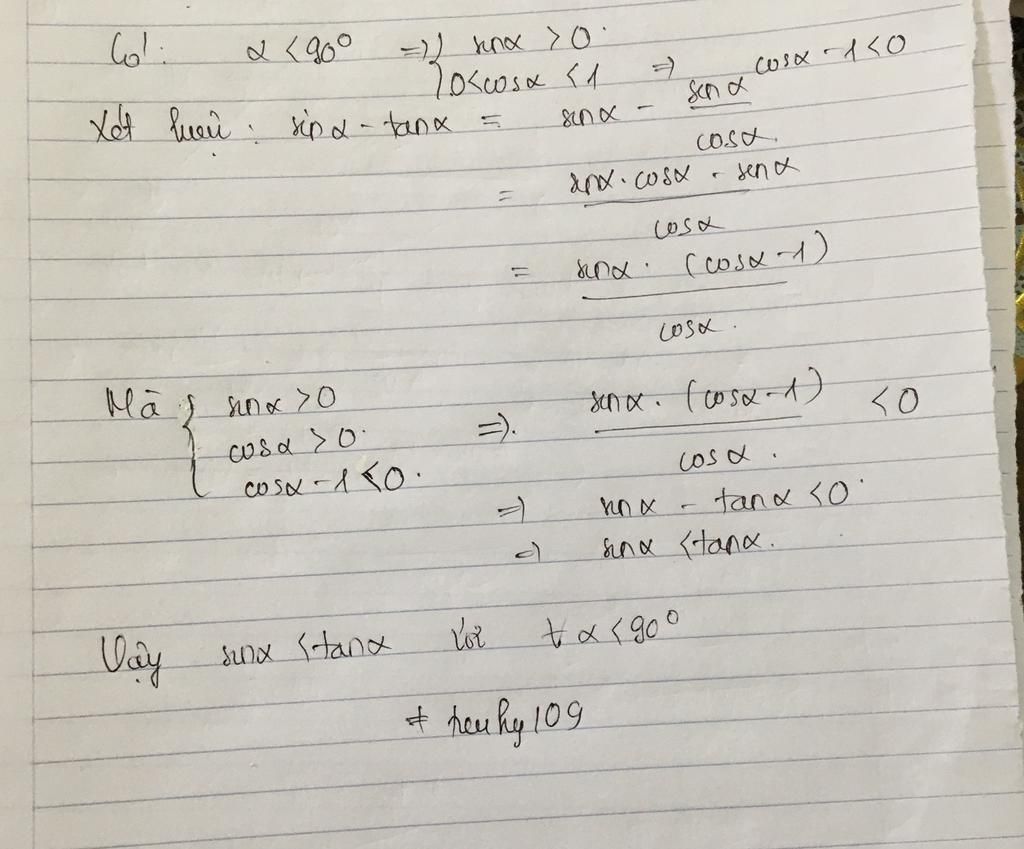 Có: α < 90° => { sinα > 0
0 < cosα < 1 => cosα - 1 < 0
Xét hiệu: sinα - tanα = sinα - sinα / cosα
= sinα . cosα - sinα / cosα
= sinα . (cosα - 1) / cosα
Mà { sinα > 0
cosα > 0
cosα - 1 < 0
=> sinα . (cosα - 1) / cosα < 0
=> sinα - tanα < 0
=> sinα < tanα
Vậy sinα < tanα với α < 90°